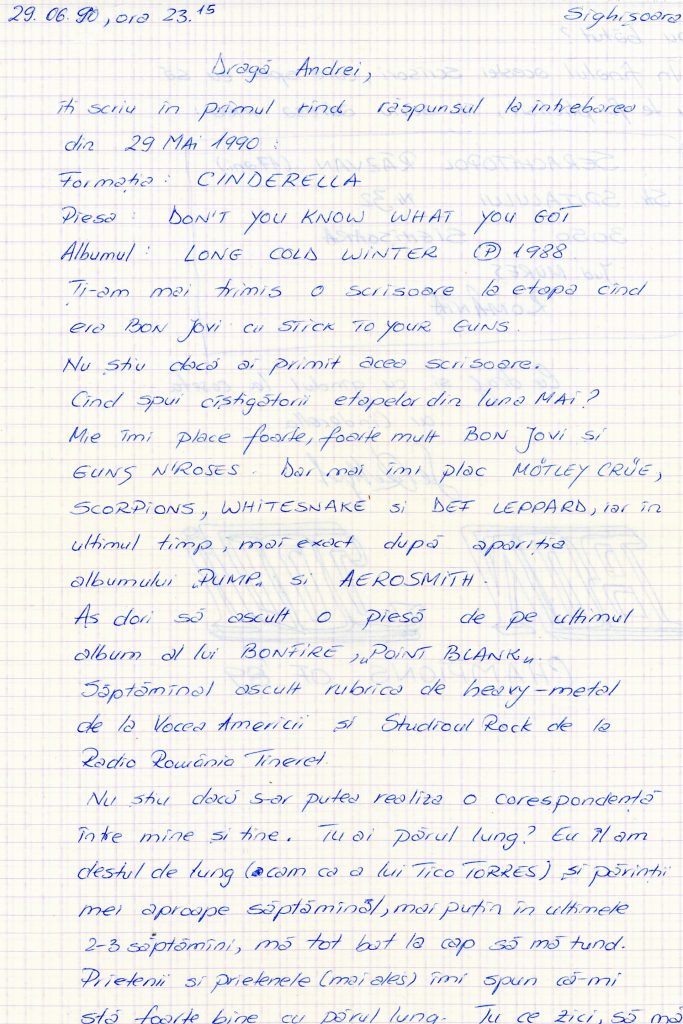 29.06.90, ora 23.15 Sighișoara
Dragă Andrei,
îți scriu în primul rînd răspunsul la întrebarea
din 29 MAi 1990 :
Formația : CINDERELLA
Piesa : DON'T YOU KNOW WHAT YOU GOT
Albumul : LONG COLD WiNTER Ⓟ 1988
Ți-am mai trimis o scrisoare la etapa cînd
era BON Jovi cu STiCK TO YOUR GUNS.
Nu știu dacă ai primit acea scrisoare.
Cînd spui cîștigătorii etapelor din luna MAi?
Mie îmi place foarte, foarte mult BON Jovi si
GUNS N'ROSES. Dar mai îmi plac MÖTLEY CRÜE,
SCORPiONS, WHiTESNAKE si DEF LEPPARD, iar în
ultimul timp, mai exact după apariția
albumului „PUMP„ si AEROSMiTH.
Aș dori să ascult o piesă de pe ultimul
album al lui BONFiRE, „POiNT BLANK„.
Săptămînal ascult rubrica de heavy-metal
de la Vocea Americii si Studioul Rock de la
Radio România Tineret.
Nu știu dacă s-ar putea realiza o corespondență
între mine și tine. Tu ai părul lung? Eu îl am
destul de lung (cam ca a lui Tico TORRES) și părinții
mei aproape săptămînăl, mai puțin în ultimele
2-3 săptămîni, mă tot bat la cap să mă tund.
Prietenii si prietenele (mai ales) îmi spun că-mi
stă foarte bine cu părul lung. Tu ce zici, să mă